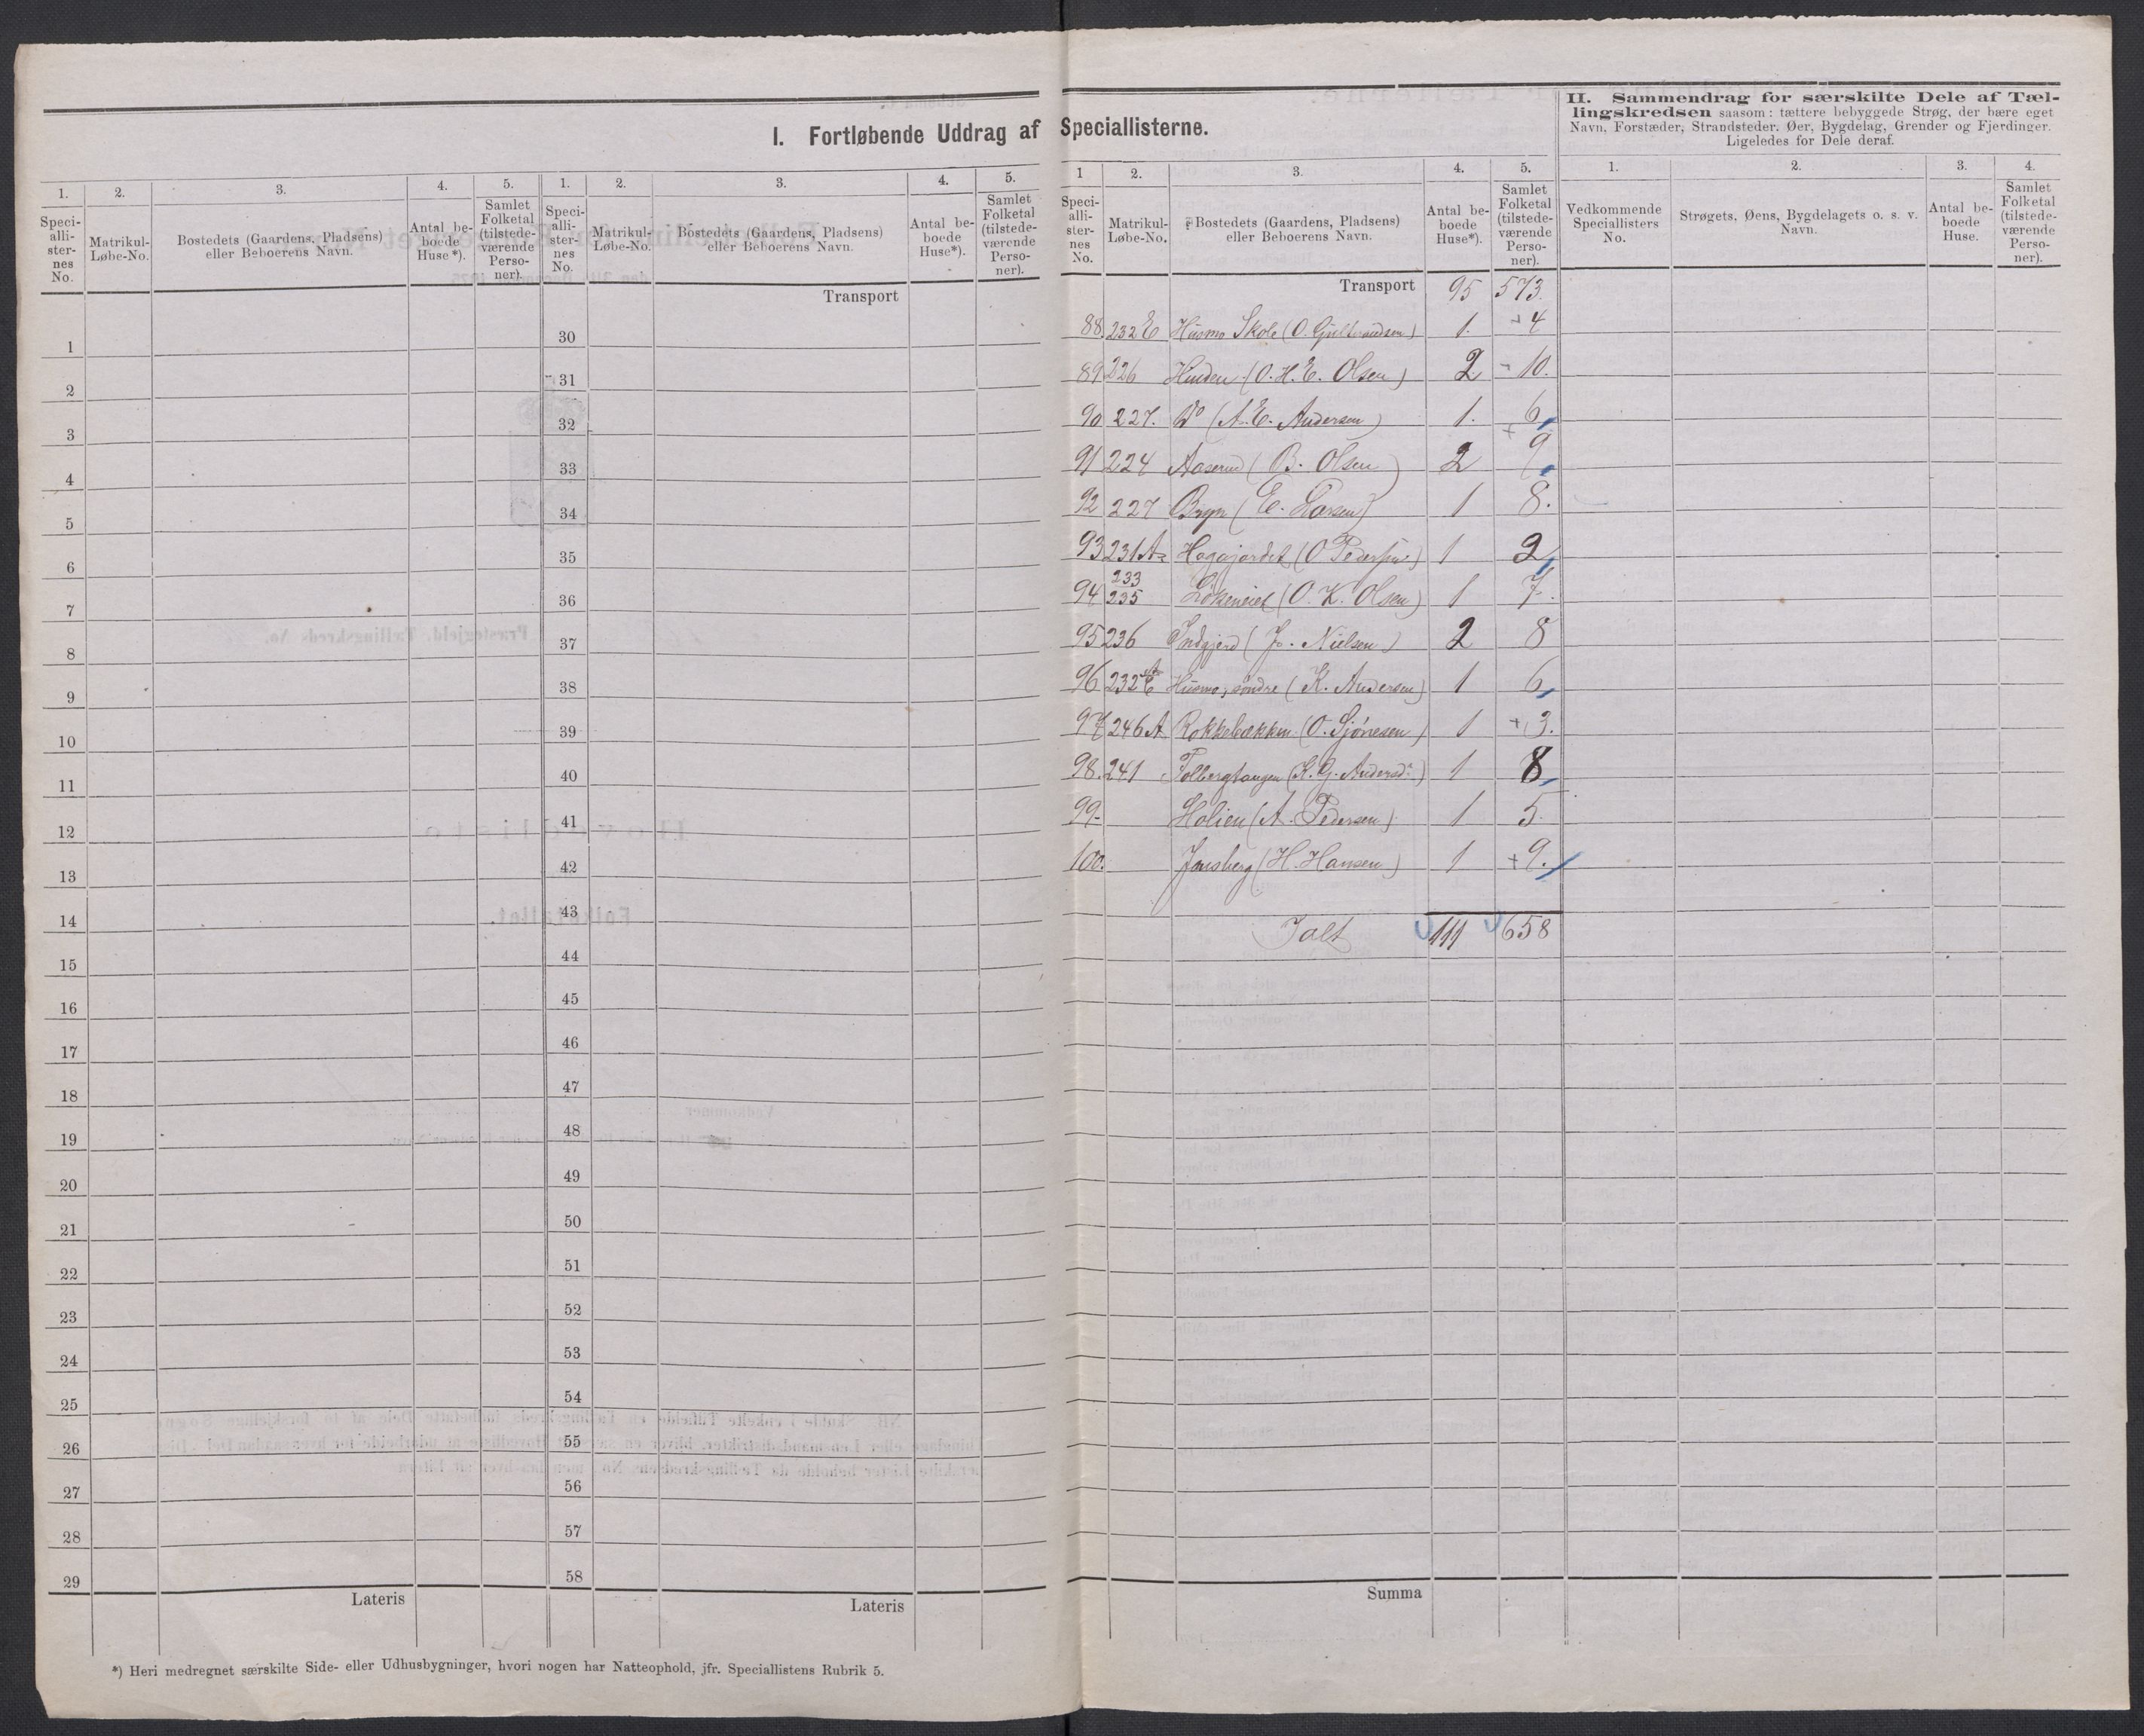 I. Fortløbende Uddrag af Speciallisterne.
II. Sammendrag for særskilte Dele af Tæl-
lingskredsen saasom: tættere bebyggede Strøg, der bære eget
Navn, Forstæder, Strandsteder, Øer, Bygdelag, Grender og Fjerdinger.
Ligeledes for Dele deraf.
1. 2. 3. 4. 5. 1. 2. 3. 4. 5.
Speci-
alli-
ster-
nes
No.
Matrikul-
Løbe-No.
Bostedets (Gaardens, Pladsens)
eller Beboerens Navn.
Antal be-
boede
Huse*).
Samlet
Folketal
(tilstede-
værende
Perso-
ner).
Speci-
alli-
ster-
nes
No.
Matrikul-
Løbe-No.
Bostedets (Gaardens, Pladsens)
eller Beboerens Navn.
Antal be-
boede
Huse*).
Samlet
Folketal
(tilstede-
værende
Perso-
ner).
Transport
1 30
2 31
3 32
4 33
5 34
6 35
7 36
8 37
9 38
10 39
11 40
12 41
13 42
14 43
15 44
16 45
17 46
18 47
19 48
20 49
21 50
22 51
23 52
24 53
25 54
26 55
27 56
28 57
29 58
Lateris Lateris
*) Heri medregnet særskilte Side- eller Udhusbygninger, hvori nogen har Natteophold, jfr. Speciallistens Rubrik 5.
1 2. 3. 4. 5. 1. 2. 3. 4.
Speci-
alli-
ster-
nes
No.
Matrikul-
Løbe-No.
Bostedets (Gaardens, Pladsens)
eller Beboerens Navn.
Antal be-
boede
Huse*).
Samlet
Folketal
(tilstede-
værende
Perso-
ner).
Vedkommende
Speciallisters
No.
Strøgets, Øens, Bygdelagets o. s. v.
Navn.
Antal be-
boede
Huse.
Samlet
Folketal
(tilstede-
værende
Perso-
ner).
Transport 95 573.
88. 232 E Husmo Skole (O. Gulbrandsen) 1. 4
89 226 Hinden (O. H. E. Olsen) 2 10.
90 227. Do (A. E. Andersen) 1. 6
91 224 Aaserud (B. Olsen) 2 9
92 227 Bryn (E. Larsen) 1 8.
93 231 A Hagajordet (O Pedersen) 1 2
94 233
235 (O. K. Olsen) 1 7.
95 236 Indgjerd (J. Nielsen) 2 8
96 232 Husmo, søndre (K. Andersen) 1 6
97 246 A Rokkebækken (O. ) 1 + 3.
98. 241 Tolbergtangen (K. G. Andersdr) 1 8
99 Holien (A. Pedersen) 1 5.
100. Jensberg (H. Hansen) 1 + 9.
Ialt 111 658
Summa